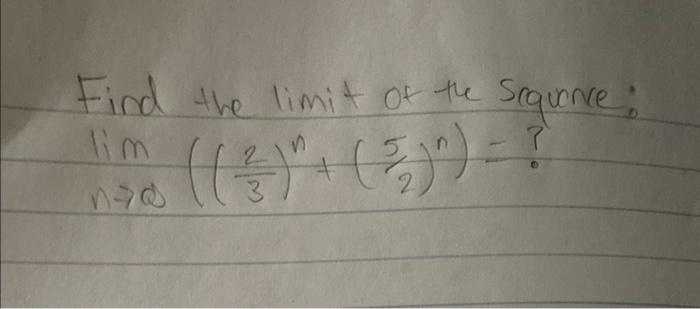 Find the limit of the Sequence:
lim n→∞ ((2/3)^n + (5/2)^n) = ?